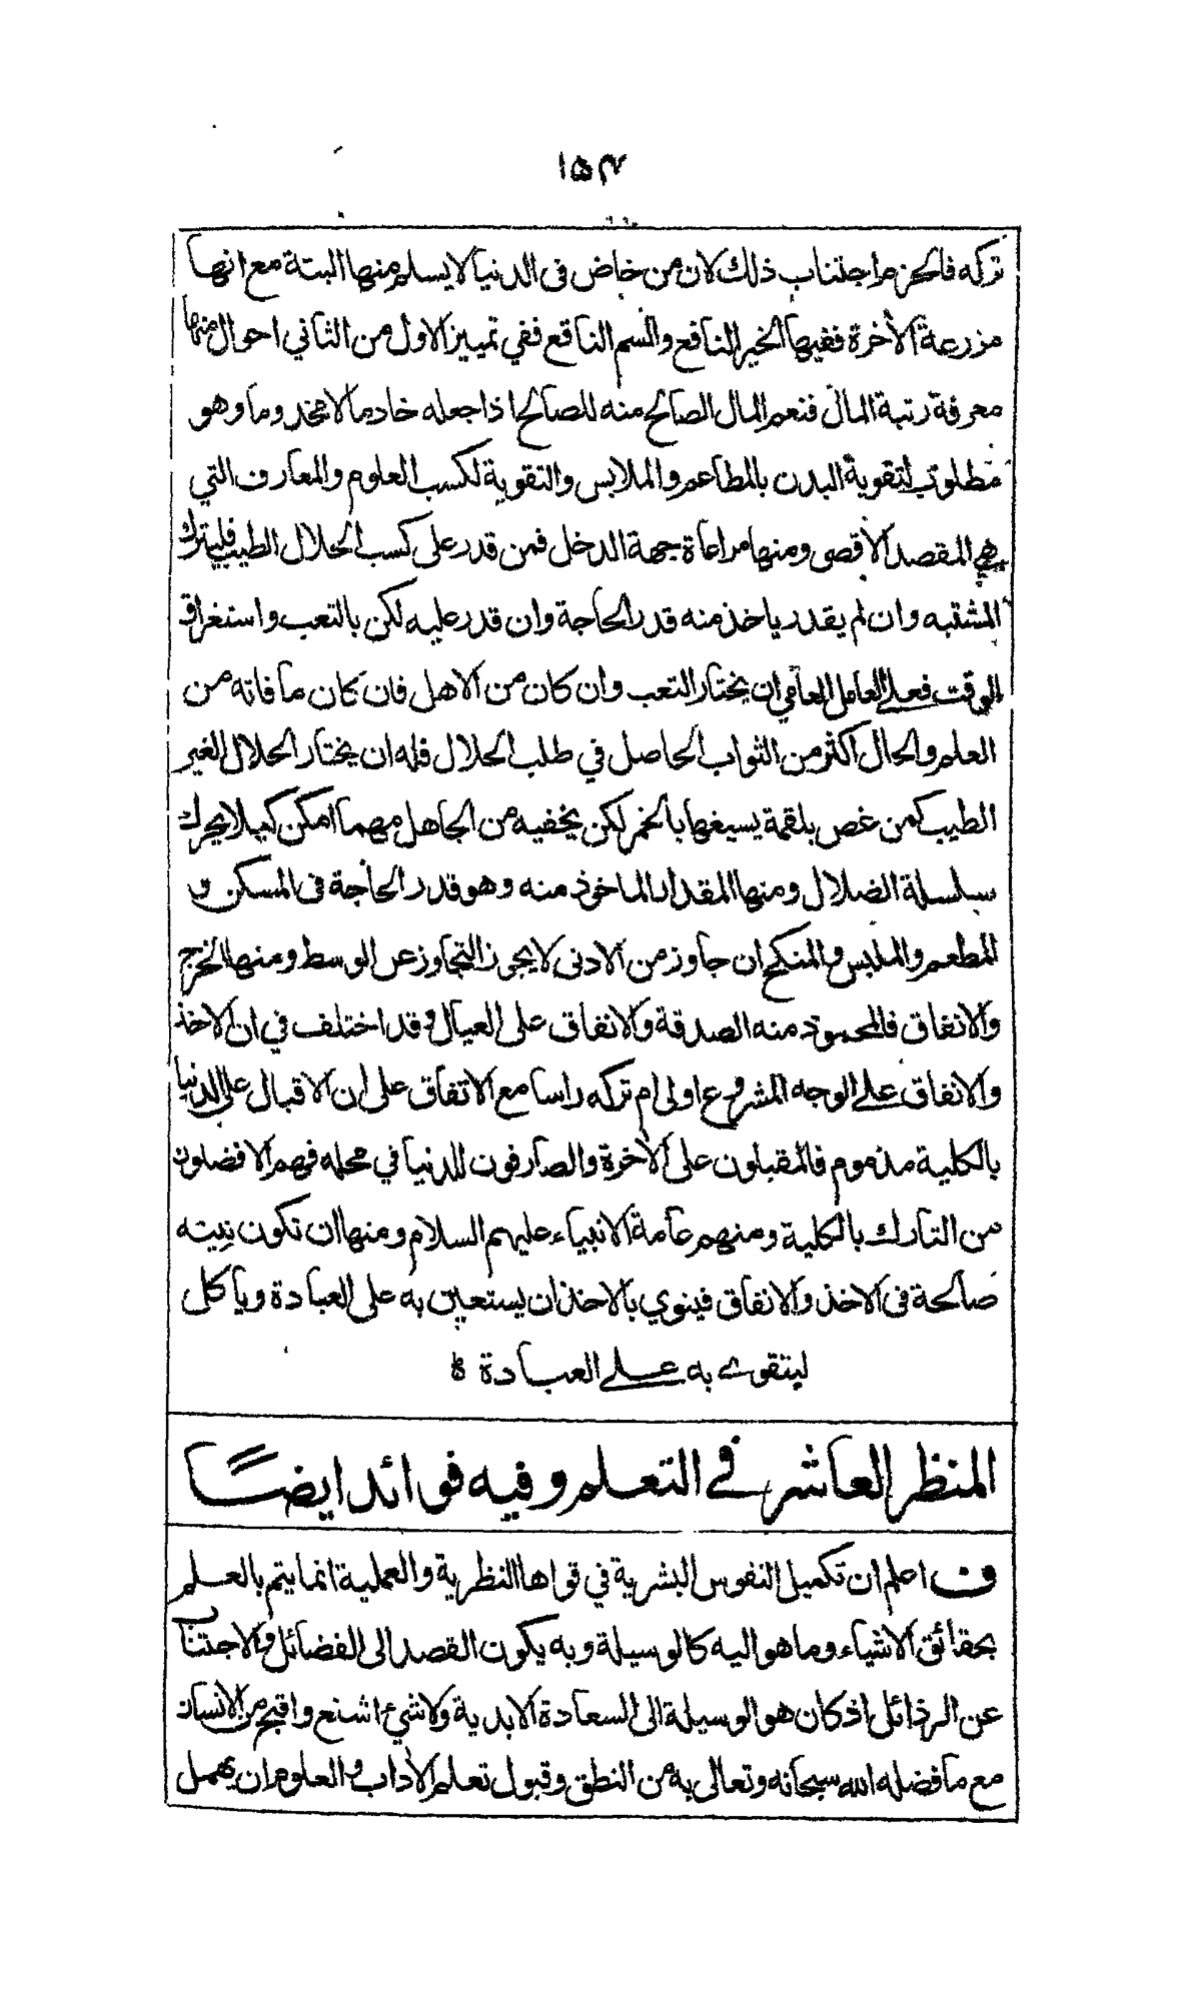 ١٥٤
تركه فالحزم اجتناب ذلك لان من خاض فى الدنيا لا يسلم منها البتة مع انها
مزرعة الأخرة ففيها الخير النافع والسم الناقع ففي تمييز الاول من الثاني احوال منها
معرفة رتبة المال فنعم المال الصالح منه للصالح اذا جعله خادما لا مخدوما وهو
مطلوب لتقوية البدن بالمطاعم والملابس والتقوية لكسب العلوم والمعارف التي
هي المقصد الأقصى ومنها مراعاة جهة الدخل فمن قدر على كسب الحلال الطيب فليترك
المشتبه وان لم يقدر ياخذ منه قدر الحاجة وان قدر عليه لكن بالتعب واستغراق
الوقت فعلى العامل العامي ان يختار التعب وان كان من الاهل فان كان ما فاته من
العلم والحال اكثر من الثواب الحاصل في طلب الحلال فله ان يختار الحلال الغير
الطيب كمن غص بلقمة يسيغها بالخمر لكن يخفيه من الجاهل مهما امكن كيلا يحرك
سلسلة الضلال ومنها المقدار الماخوذ منه وهو قدر الحاجة فى المسكن و
المطعم والملبس والمنكح ان جاوز من الادنى لا يجوز التجاوز عن الوسط ومنها الخرج
والانفاق فالمحمود منه الصدقة والانفاق على العيال وقد اختلف في ان الاخذ
والانفاق على الوجه المشروع اولى ام تركه راسا مع الاتفاق على ان الاقبال على الدنيا
بالكلية مذموم فالمقبلون على الأخرة والصارفون للدنيا في محله فهم الافضلون
من التارك بالكلية ومنهم عامة الانبياء عليهم السلام ومنها ان تكون نيته
صالحة فى الاخذ والانفاق فينوي بالاخذ ان يستعين به على العبادة ويأكل
ليتقوى به على العبادة
المنظر العاشر في التعلم وفيه فوائد ايضًا
ف اعلم ان تكميل النفوس البشرية في قواها النظرية والعملية انما يتم بالعلم
بحقائق الاشياء وما هو اليه كالوسيلة وبه يكون القصد الى الفضائل والاجتناب
عن الرذائل اذ كان هو الوسيلة الى السعادة الابدية ولا شيء اشنع واقبح من الانسان
مع ما فضله الله سبحانه وتعالى به من النطق وقبول تعلم الأداب والعلوم ان يهمل